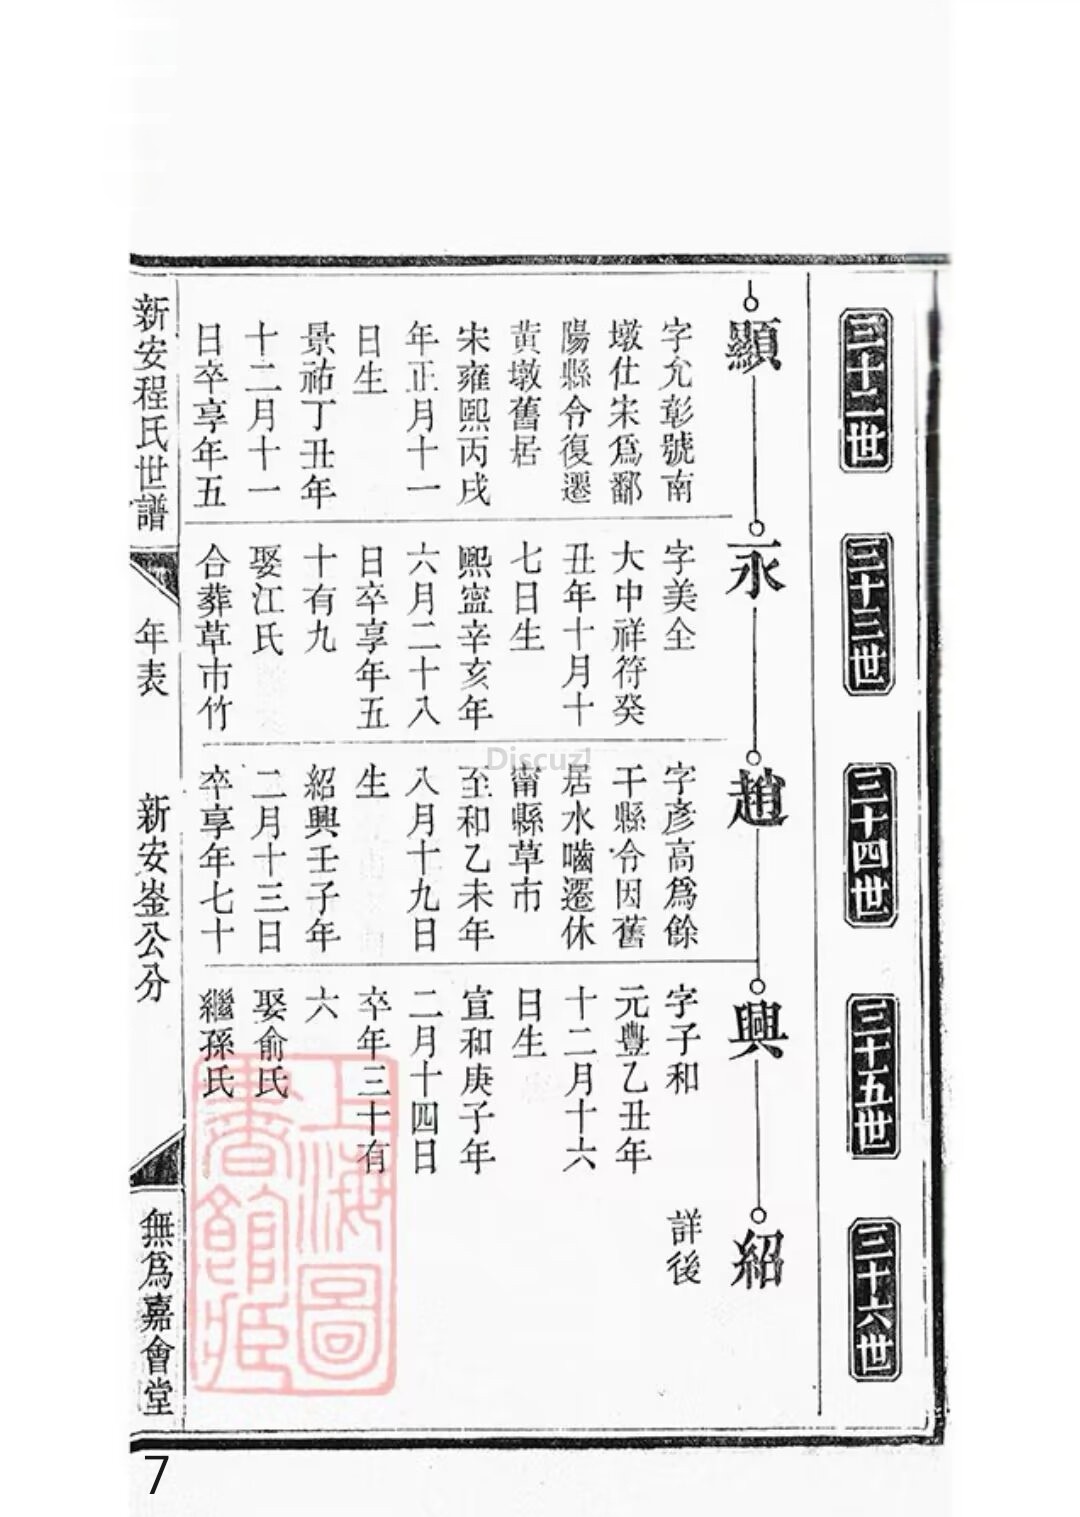 三十二世
三十三世
三十四世
三十五世
三十六世
顯
字允彰號南
墩仕宋爲鄱
陽縣令復遷
黃墩舊居
宋雍熙丙戌
年正月十一
日生
景祐丁丑年
十二月十一
日卒享年五
永
字美全
大中祥符癸
丑年十月十
七日生
熙寍辛亥年
六月二十八
日卒享年五
十有九
娶江氏
合葬草市竹
趙
字彥高爲餘
干縣令因舊
居水嚙遷休
甯縣草市
至和乙未年
八月十九日
生
紹興壬子年
二月十三日
卒享年七十
興
字子和
元豐乙丑年
十二月十六
日生
宣和庚子年
二月十四日
卒年三十有
六
娶俞氏
繼孫氏
紹
詳後
新安程氏世譜
年表
新安崟公分
無爲嘉會堂
上海圖
書館藏
Discuz!
7